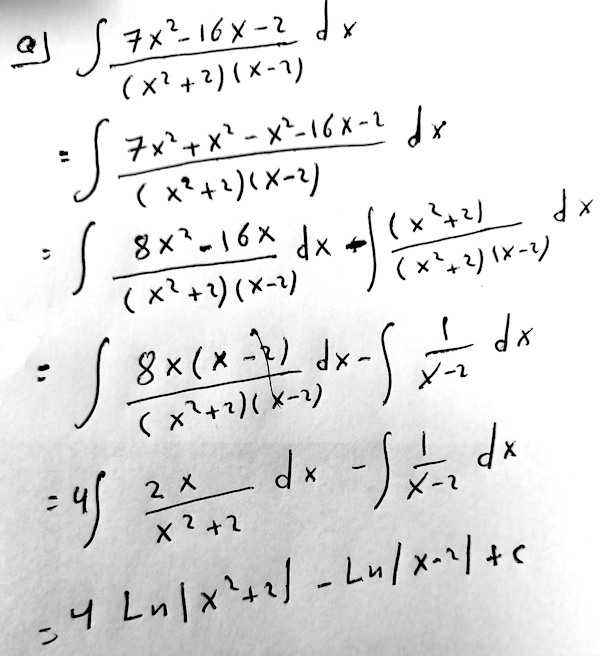 Q] ∫ 7x²-16x-2 / (x²+2)(x-2) dx
= ∫ 7x²+x²-x²-16x-2 / (x²+2)(x-2) dx
= ∫ 8x²-16x / (x²+2)(x-2) dx - ∫ (x²+2) / (x²+2)(x-2) dx
= ∫ 8x(x-2) / (x²+2)(x-2) dx - ∫ 1 / x-2 dx
= 4∫ 2x / x²+2 dx - ∫ 1 / x-2 dx
= 4 Ln|x²+2| - Ln|x-2| + c